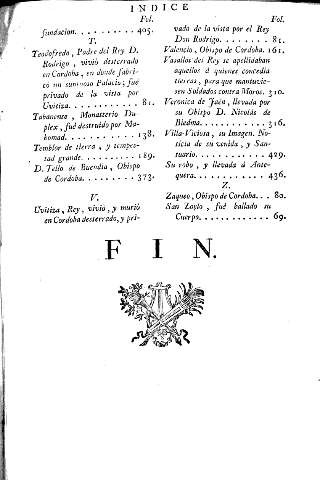 INDICE
Fol.
fundacion. . . . . . . . . . . 405.
T.
Teodofredo, Padre del Rey D.
Rodrigo, vivió desterrado
en Cordoba, en donde fabri-
có un sumptuoso Palacio; fué
privado de la vista por
Uvitiza. . . . . . . . . . . . 81.
Tabanense, Monasterio Du-
plex, fué destruido por Ma-
homad. . . . . . . . . . . . 138.
Temblor de tierra, y tempes-
tad grande. . . . . . . . . . 189.
D. Tello de Buendia, Obispo
de Cordoba. . . . . . . . . 373.
V.
Uvitiza, Rey, vivió, y murió
en Cordoba desterrado, y pri-
Fol.
vado de la vista por el Rey
Don Rodrigo. . . . . . . . . 85.
Valencio, Obispo de Cordoba. 161.
Vasallos del Rey se apellidaban
aquellos á quienes concedia
tierras, para que mantuvie-
sen Soldados contra Moros. 310.
Veronica de Jaén, llevada por
su Obispo D. Nicolás de
Biedma. . . . . . . . . . . . 316.
Villa-Viciosa, su Imagen. No-
ticia de su venida, y San-
tuario. . . . . . . . . . . . 429.
Su robo, y llevada á Ante-
quera. . . . . . . . . . . . 436.
Z.
Zaqueo, Obispo de Cordoba. . . 80.
San Zoylo, fué hallado su
Cuerpo. . . . . . . . . . . . 69.
FIN.